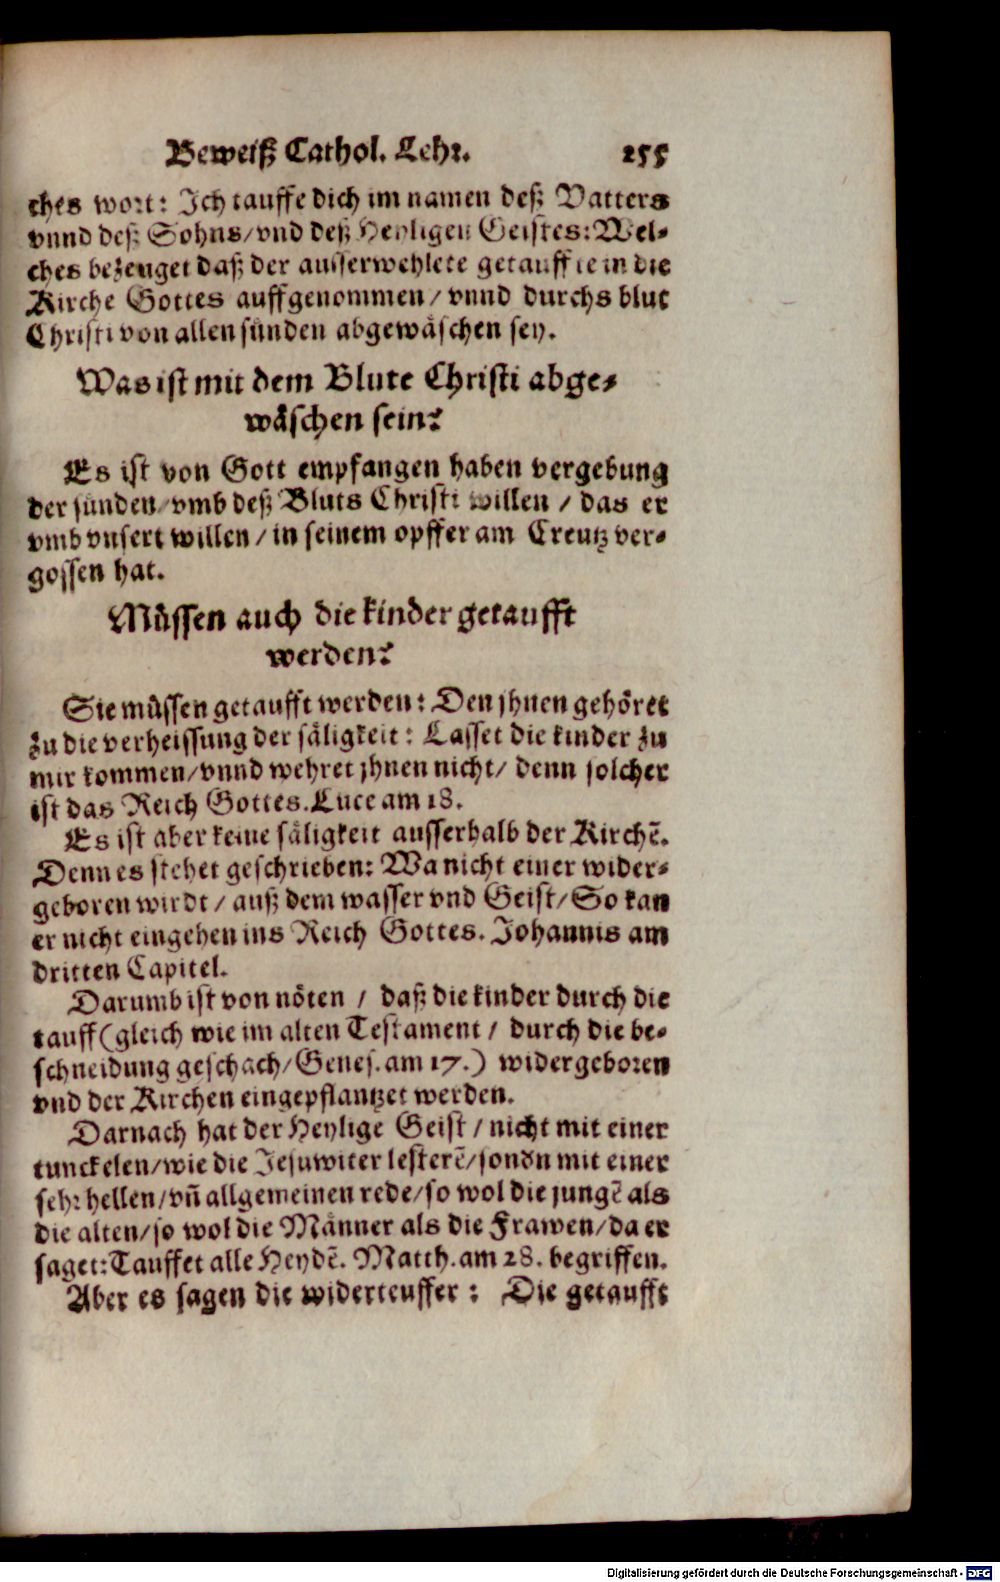 Beweiß Cathol. Lehr. 255
ches wort: Ich tauffe dich im namen deß Vatters
vnnd deß Sohns/vnd deß Heyligen Geistes: Wel-
ches bezeuget daß der ausserwehlete getauffte in die
Kirche Gottes auffgenommen/ vnnd durchs blut
Christi von allen sünden abgewäschen sey.
Was ist mit dem Blute Christi abge-
wäschen sein?
Es ist von Gott empfangen haben vergebung
der sünden/vmb deß Bluts Christi willen / das er
vmb vnsert willen/ in seinem opffer am Creutz ver-
gossen hat.
Müssen auch die kinder getaufft
werden?
Sie müssen getaufft werden: Den jhnen gehöret
zu die verheissung der säligkeit: Lasset die kinder zu
mir kommen/vnnd wehret jhnen nicht/ denn solcher
ist das Reich Gottes. Luce am 18.
Es ist aber keine säligkeit ausserhalb der Kirchẽ.
Denn es stehet geschrieben: Wa nicht einer wider-
geboren wirdt / auß dem wasser vnd Geist/ So kan
er nicht eingehen ins Reich Gottes. Johannis am
dritten Capitel.
Darumb ist von nöten / daß die kinder durch die
tauff (gleich wie im alten Testament / durch die be-
schneidung geschach/Genes. am 17.) widergeboren
vnd der Kirchen eingepflantzet werden.
Darnach hat der Heylige Geist / nicht mit einer
tunckelen/wie die Jesuwiter lesterẽ/sondn mit einer
sehr hellen/vñ allgemeinen rede/so wol die jungẽ als
die alten/so wol die Männer als die Frawen/da er
saget: Tauffet alle Heydẽ. Matth. am 28. begriffen.
Aber es sagen die widerteuffer : Die getaufft
Digitalisierung gefördert durch die Deutsche Forschungsgemeinschaft - DFG